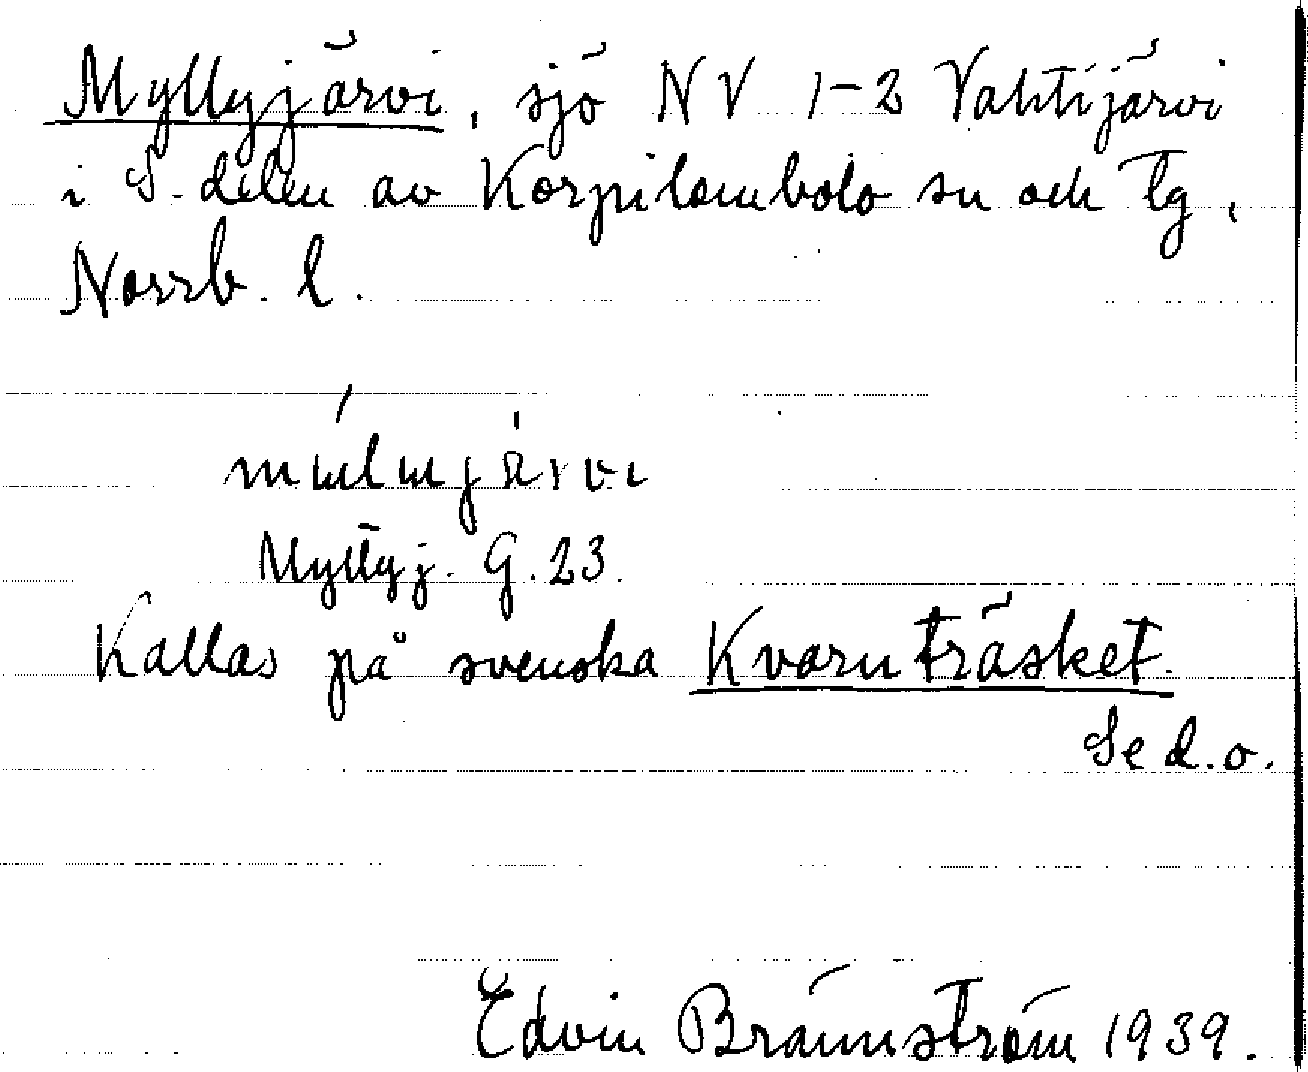 Myllyjärvi, sjö NV 1-2 Vahtijärvi
i S. delen av Korpilombolo sn och tg,
Norrb. l.
Myllyj. G. 23.
Kallas på svenska Kvarnträsket.
Se d.o.
Edvin Brännström 1939.